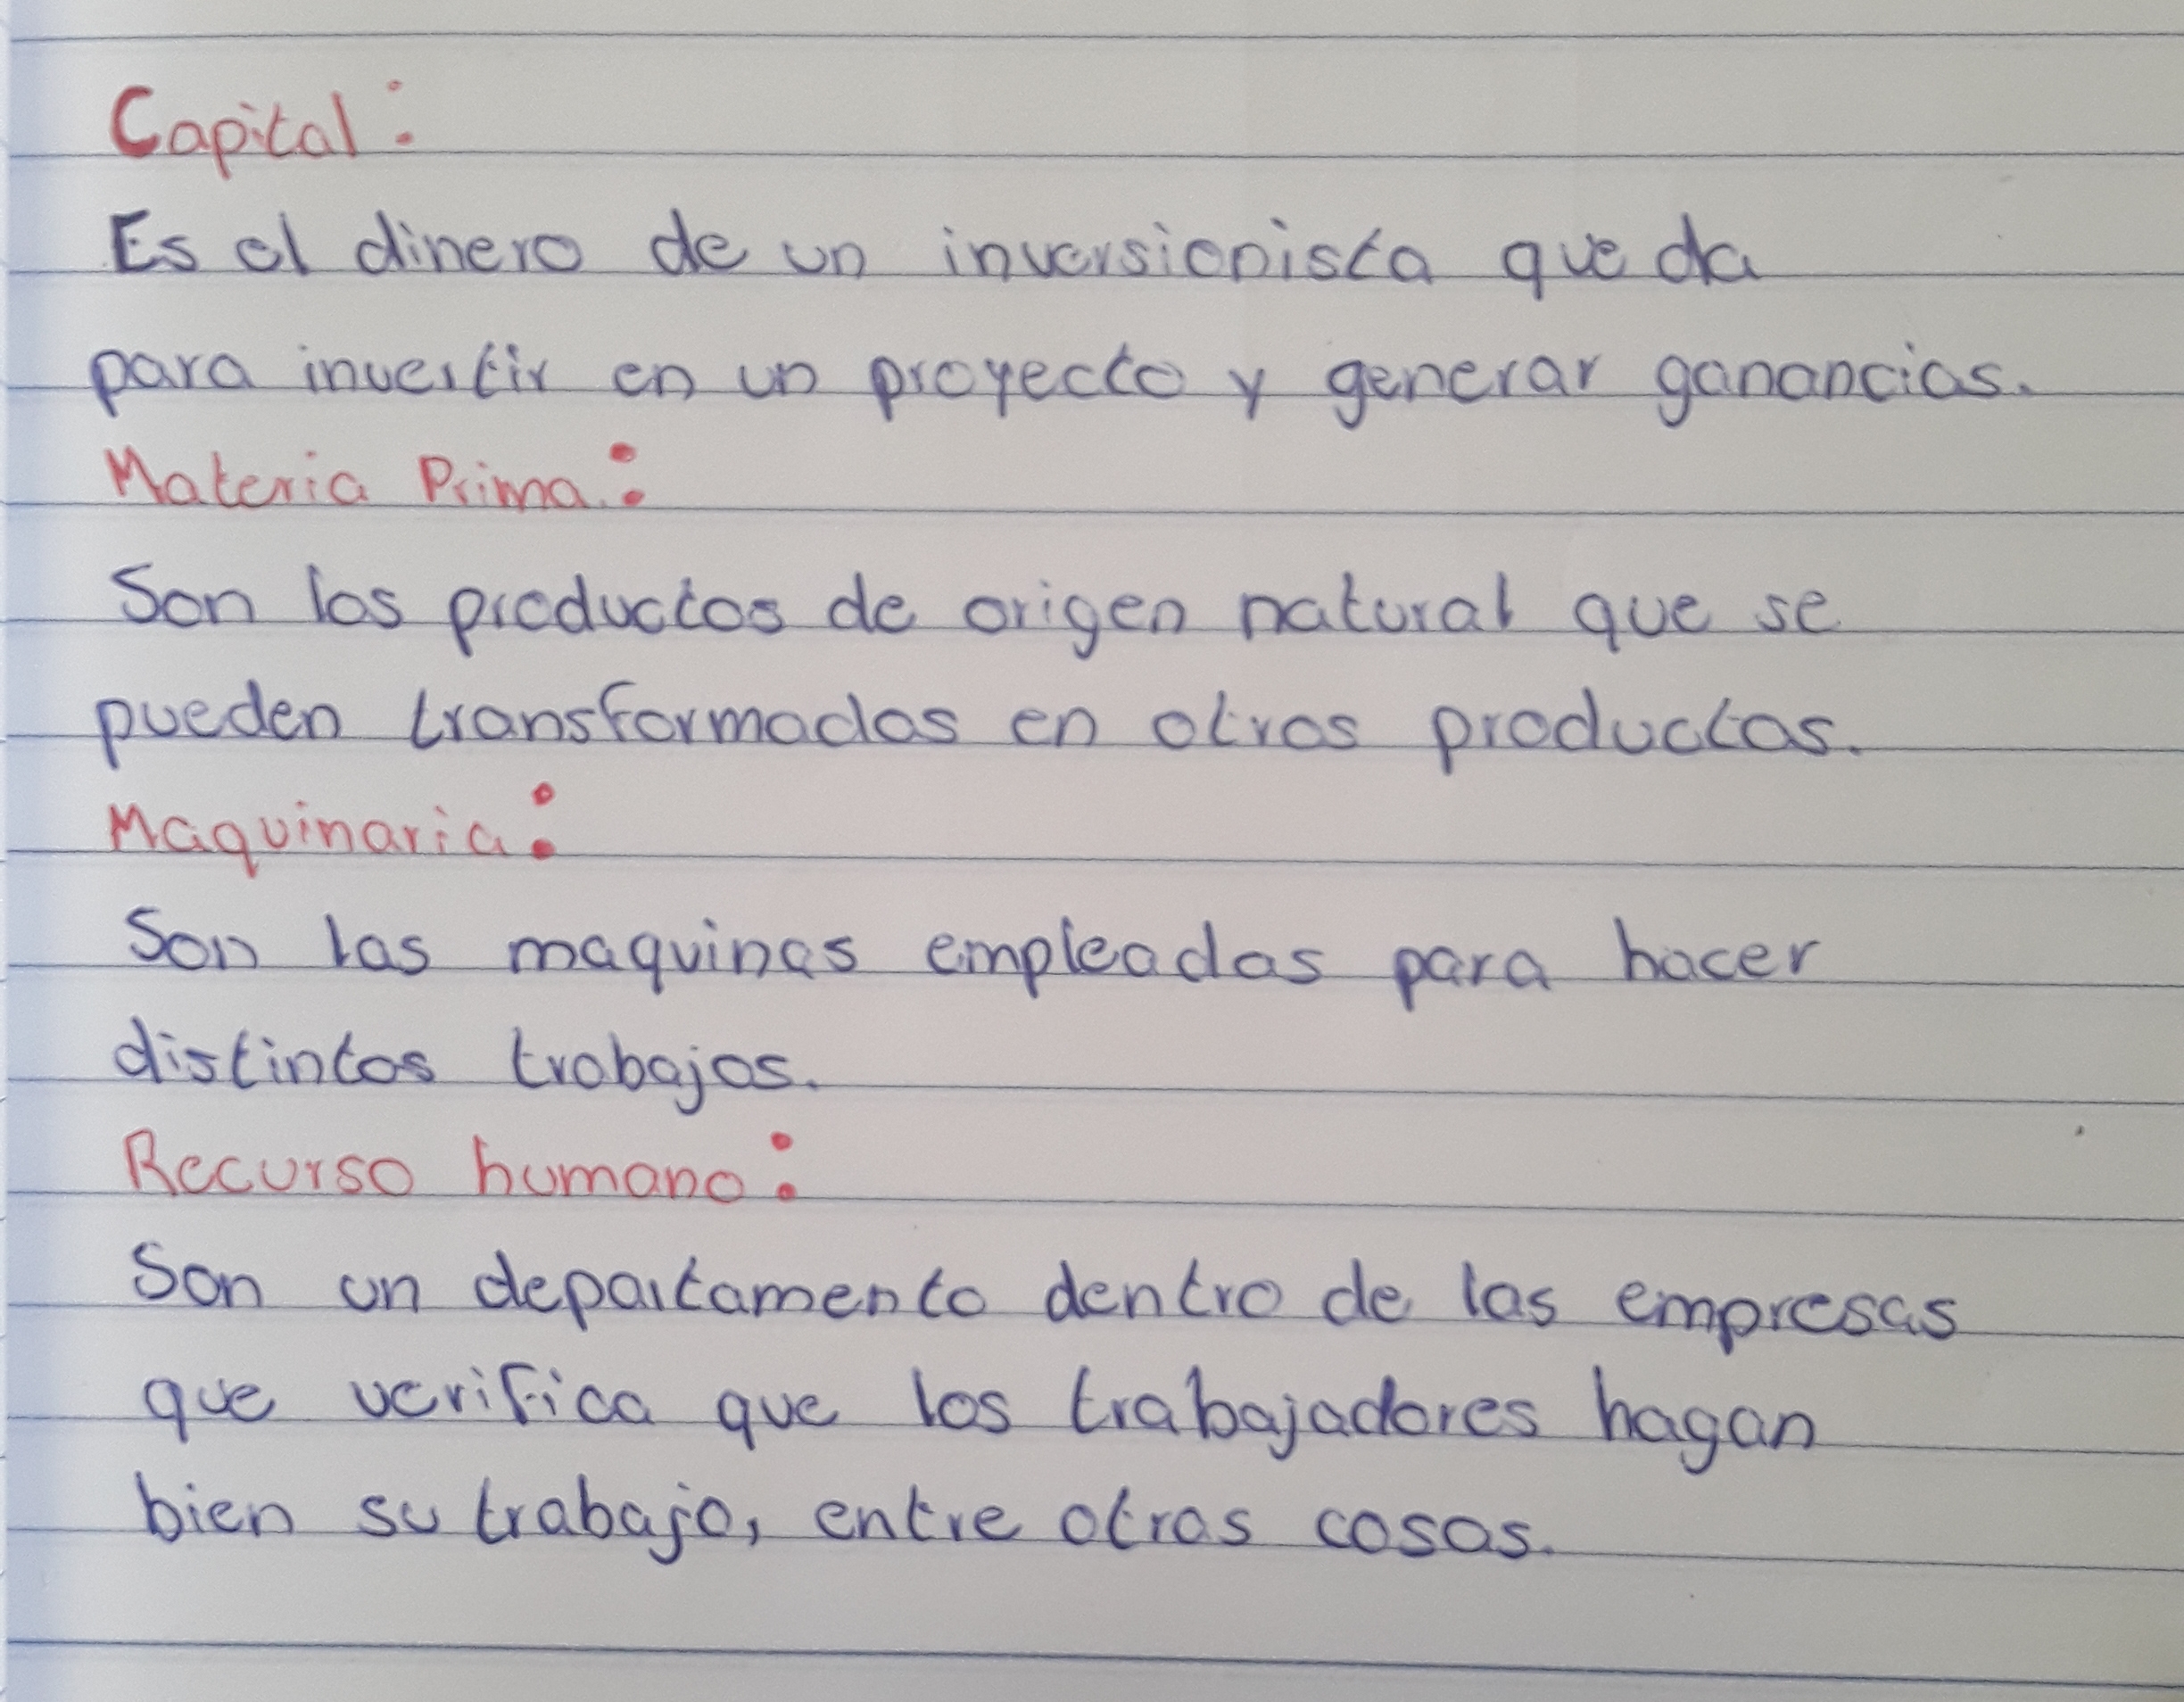 Capital:
Es el dinero de un inversionista que da
para invertir en un proyecto y generar ganancias.
Materia Prima:
Son los productos de origen natural que se
pueden transformados en otros productos.
Maquinaria:
Son las maquinas empleadas para hacer
distintos trabajos.
Recurso humano:
Son un departamento dentro de las empresas
que verifica que los trabajadores hagan
bien su trabajo, entre otras cosas.